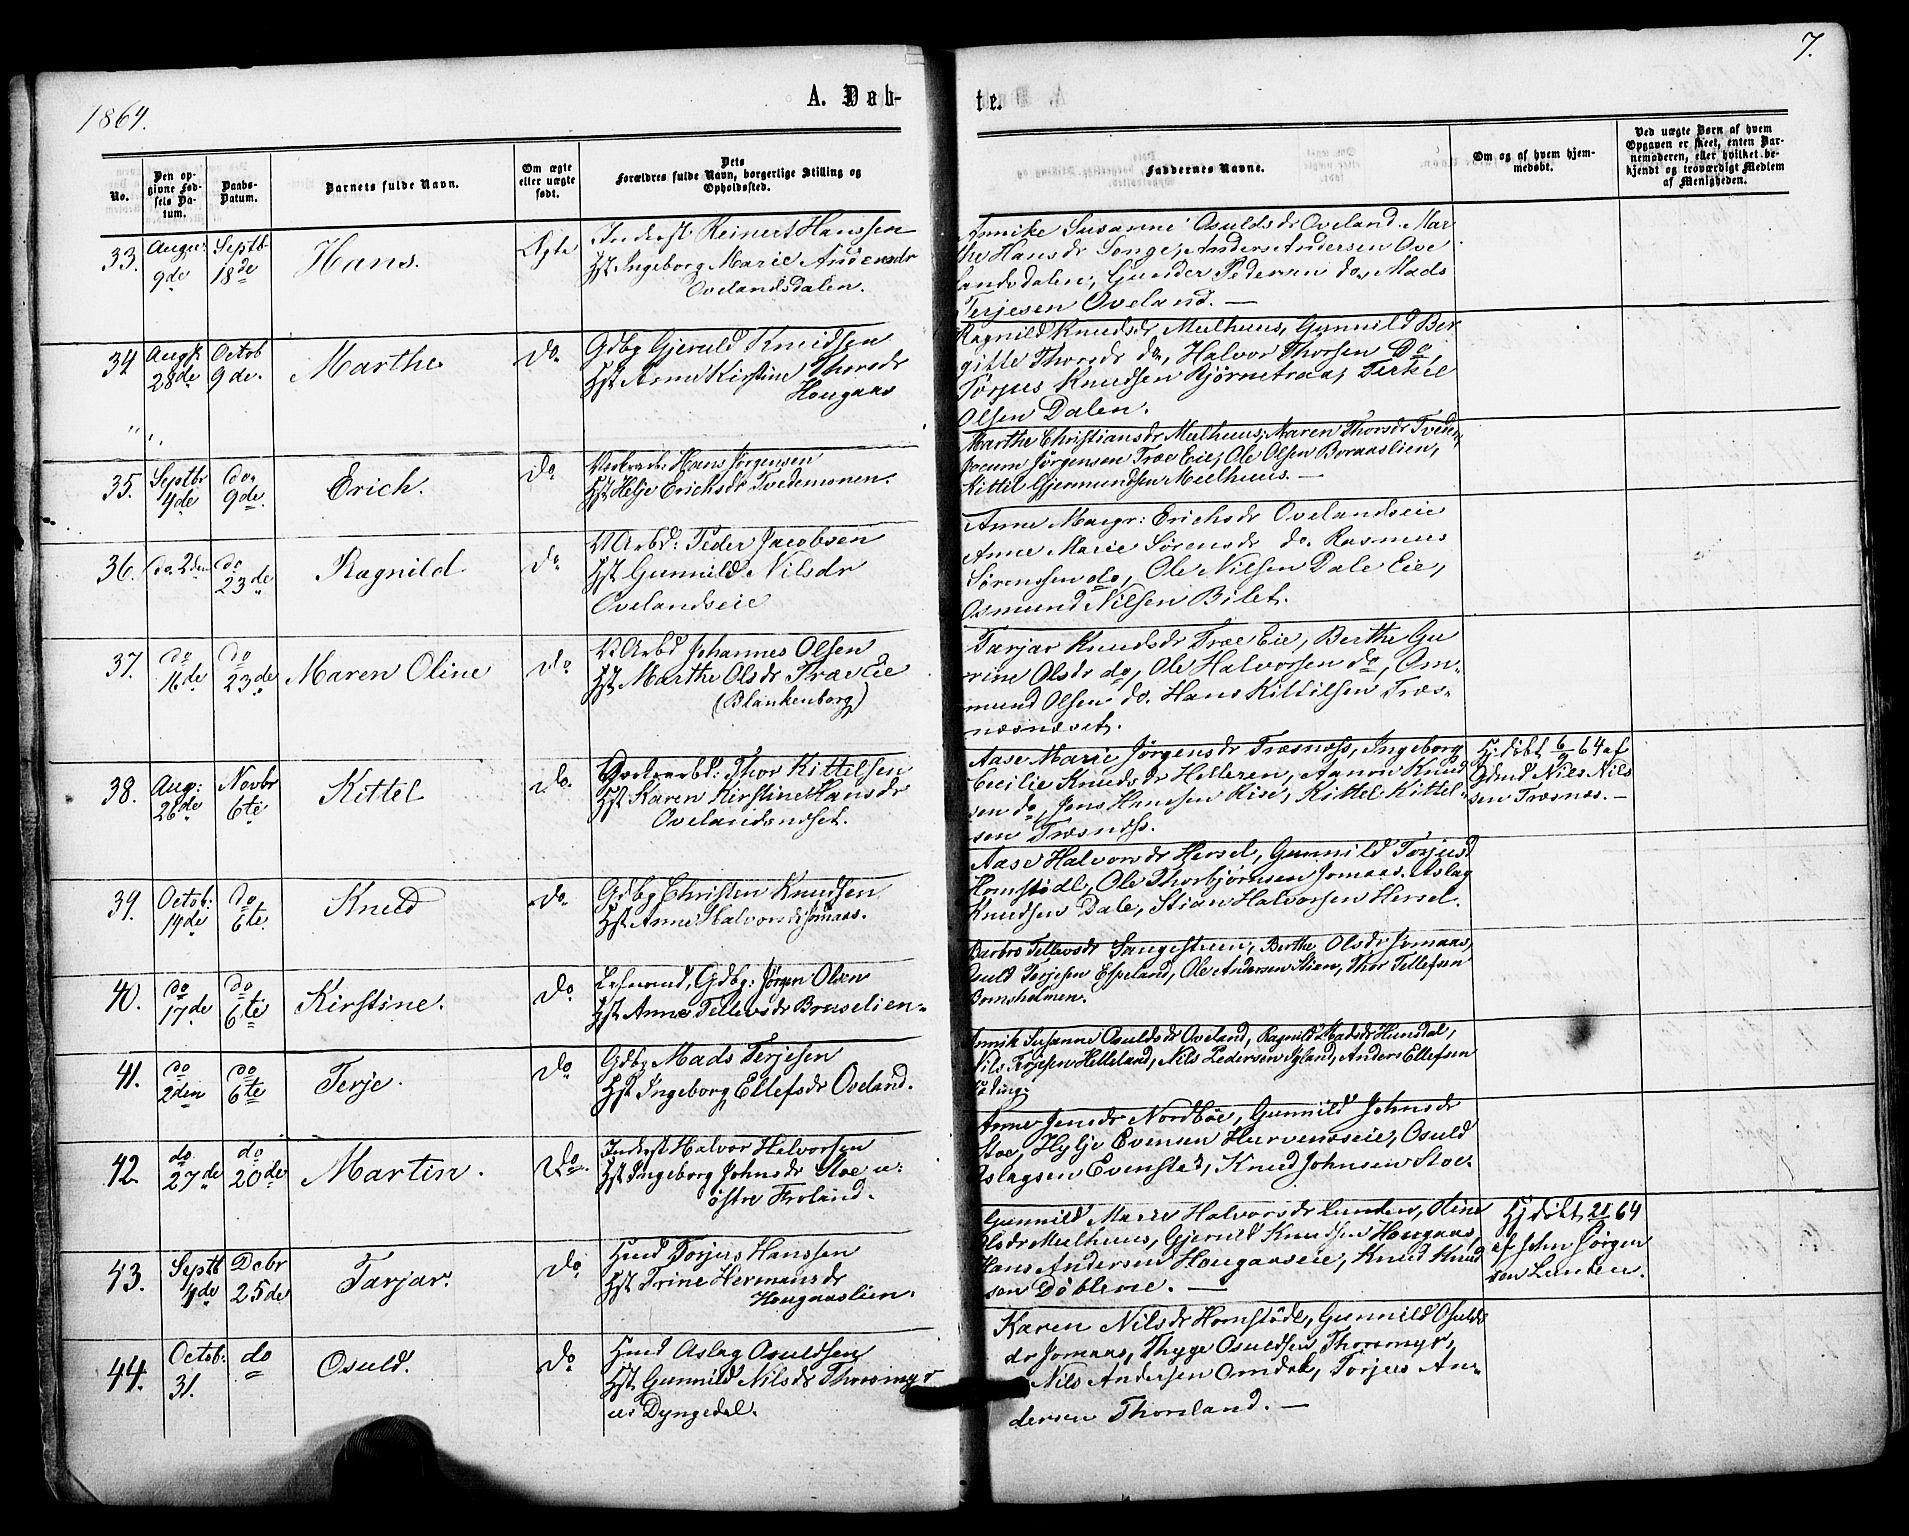 7.
1864.
A. Døb-
te.
No.
Den op-
givne Fød-
sels Da-
tum.
Daabs-
Datum.
Barnets fulde Navn.
Om ægte
eller uægte
født.
Dets
Forældres fulde Navn, borgerlige Stilling og
Opholdssted.
Faddernes Navne.
Om og af hvem hjem-
medøbt.
Ved uægte Børn af hvem
Opgaven er skeet, enten Bar-
nemoderen, eller hvilket be-
kjendt og troværdigt Medlem
af Menigheden.
33.
9de
Septb
18de
Hans.
Ægte
Inderst Reinert Hanssen
Hst Ingeborg Marie Andersdr
Ovelandsdalen.
Annike Susanne Osuldsdr Oveland. Mar
the Hansdr Songe, Anders Andersen Ove
landsdalen, Gunder Pedersen do, Mads
Terjesen Oveland. —
34
Augst
28de
Octob
9de.
Marthe
Do.
Gdbg Gjeruld Knudsen
Hst Anne Kirstine Thorsdr
Hougaas
Ragnild Knudsdr Mælhuus, Gunnild Ber
gitte Thorsdr do, Halvor Thorsen Do,
Torjus Knudsen Bjørnetraa, Terkil
Olsen Dalen.
35.
Septbr
4de
do.
9de.
Erich.
Do
Hans Jørgensen
Hst Helje Erichsdr Tvedemonen.
Marthe Christiansdr Mælhuus, Maren Thorsdr Tvede
Jørgensen Træ Eie, Ole Olsen Boraaslien,
Kittil Gjermundsen Mælhuus. —
36.
do 2den
do
23de
Ragnild
do.
V Arbd: Peder Jacobsen
Hst Gunnild Nilsdr
Ovelandseie
Anne Margr: Erichsdr Ovelandseie
Anne Marie Sørensdr do. Rasmus
Sørenssen do, Ole Nilsen Dale Eie,
Osmund Nilsen Bilet.
37.
do
16de
do
23de
Maren Oline
Do
V Arbd Johannes Olsen
Hst Marthe Olsdr Træ Eie
(Blankenborg)
Tarjar Knudsdr Træ Eie, Berthe Gu
rine Olsdr do, Ole Halvorsen do, Om-
mund Olsen do. Hans Kittilsen Træs-
næsnæset.
38.
Aug:
28de
Novbr
6te
Kittel
do.
Thor Kittelsen
Hst Karen Kirstine Hansdr
Aase Marie Jørgensdr Træsnæss, Ingeborg
Cecilie Knudsdr Helleren, Aanon Knud
sen do, Jens Hansen Rise, Kittel Kittel-
sen Træsnæss.
Hj. døbt 6/9 64 af
Gdmd Nils Nils
sen Træsnæs. —
39.
Octob:
14de
do
6te.
Knud
Do.
Gdbg Christen Knudsen
Hst Anne Halvorsdr Jomaas.
Aase Halvorsdr Hersel, Gunnild Torjusd
Hornstödl, Ole Thorbjörnsen Jomaas. Aslag
Knudsen Dale, Stian Halvorsen Hersel.
40.
do
17de
do
6te
Kirstine.
Do
Gdbg: Jörgen Olsen
Hst Anne Tellevsdr Bruselien-
Barbro Tellevsdr Songesteen, Berthe Olsdr Jomaas,
Osuld Torjesen Espeland, Ole Andersen Stien, Thor Tellefsen
41.
do
2den
do
6te
Terje.
Do
Gdbg Mads Terjesen
Hst Ingeborg Ellefsdr Oveland.
Annik Susanne Osuldsdr Oveland, Ragnild Madsdr Hunsdal,
Nils Torjesen Helleland, Nils Pedersen Igland, Anders Ellefsen
42.
do
27de
do
20de
Martin.
Do.
Inderst Halvor Halvorsen
Hst Ingeborg Johnsdr Stoe u:
østre Froland.
Anne Jensdr Nordböe, Gunnild Johnsdr
Stoe, Hylje Evensen Hurvenæseie, Osuld
Aslagsen Evenstad, Knud Johnsen Stoe.
43.
Septb
4de
Dcbr
25de
Tarjar.
Do.
Hmd Torjus Hanssen
Hst Trine Hermansdr
Hougaaslien.
Gunnild Marie Halvorsdr Lunden, Oline
Olsdr Mælhuus, Gjeruld Knudsen Hougaas,
Hans Andersen Hougaaseie, Knud Knud
sen Döblene. —
Hj døbt 64
af John Jørgen
sen Lunden.
44.
Octob:
31.
do
Osuld.
Do
Hmd Aslag Osuldsen
Hst Gunnild Nilsdr Thorsmyr
u: Dyngedal.
Karen Nilsdr Hornstödl, Gunnild Osulds
dr Jomaas, Thyge Osuldsen Thorsmyr,
Nils Andersen Omdal, Torjus An-
dersen Thorsland. —